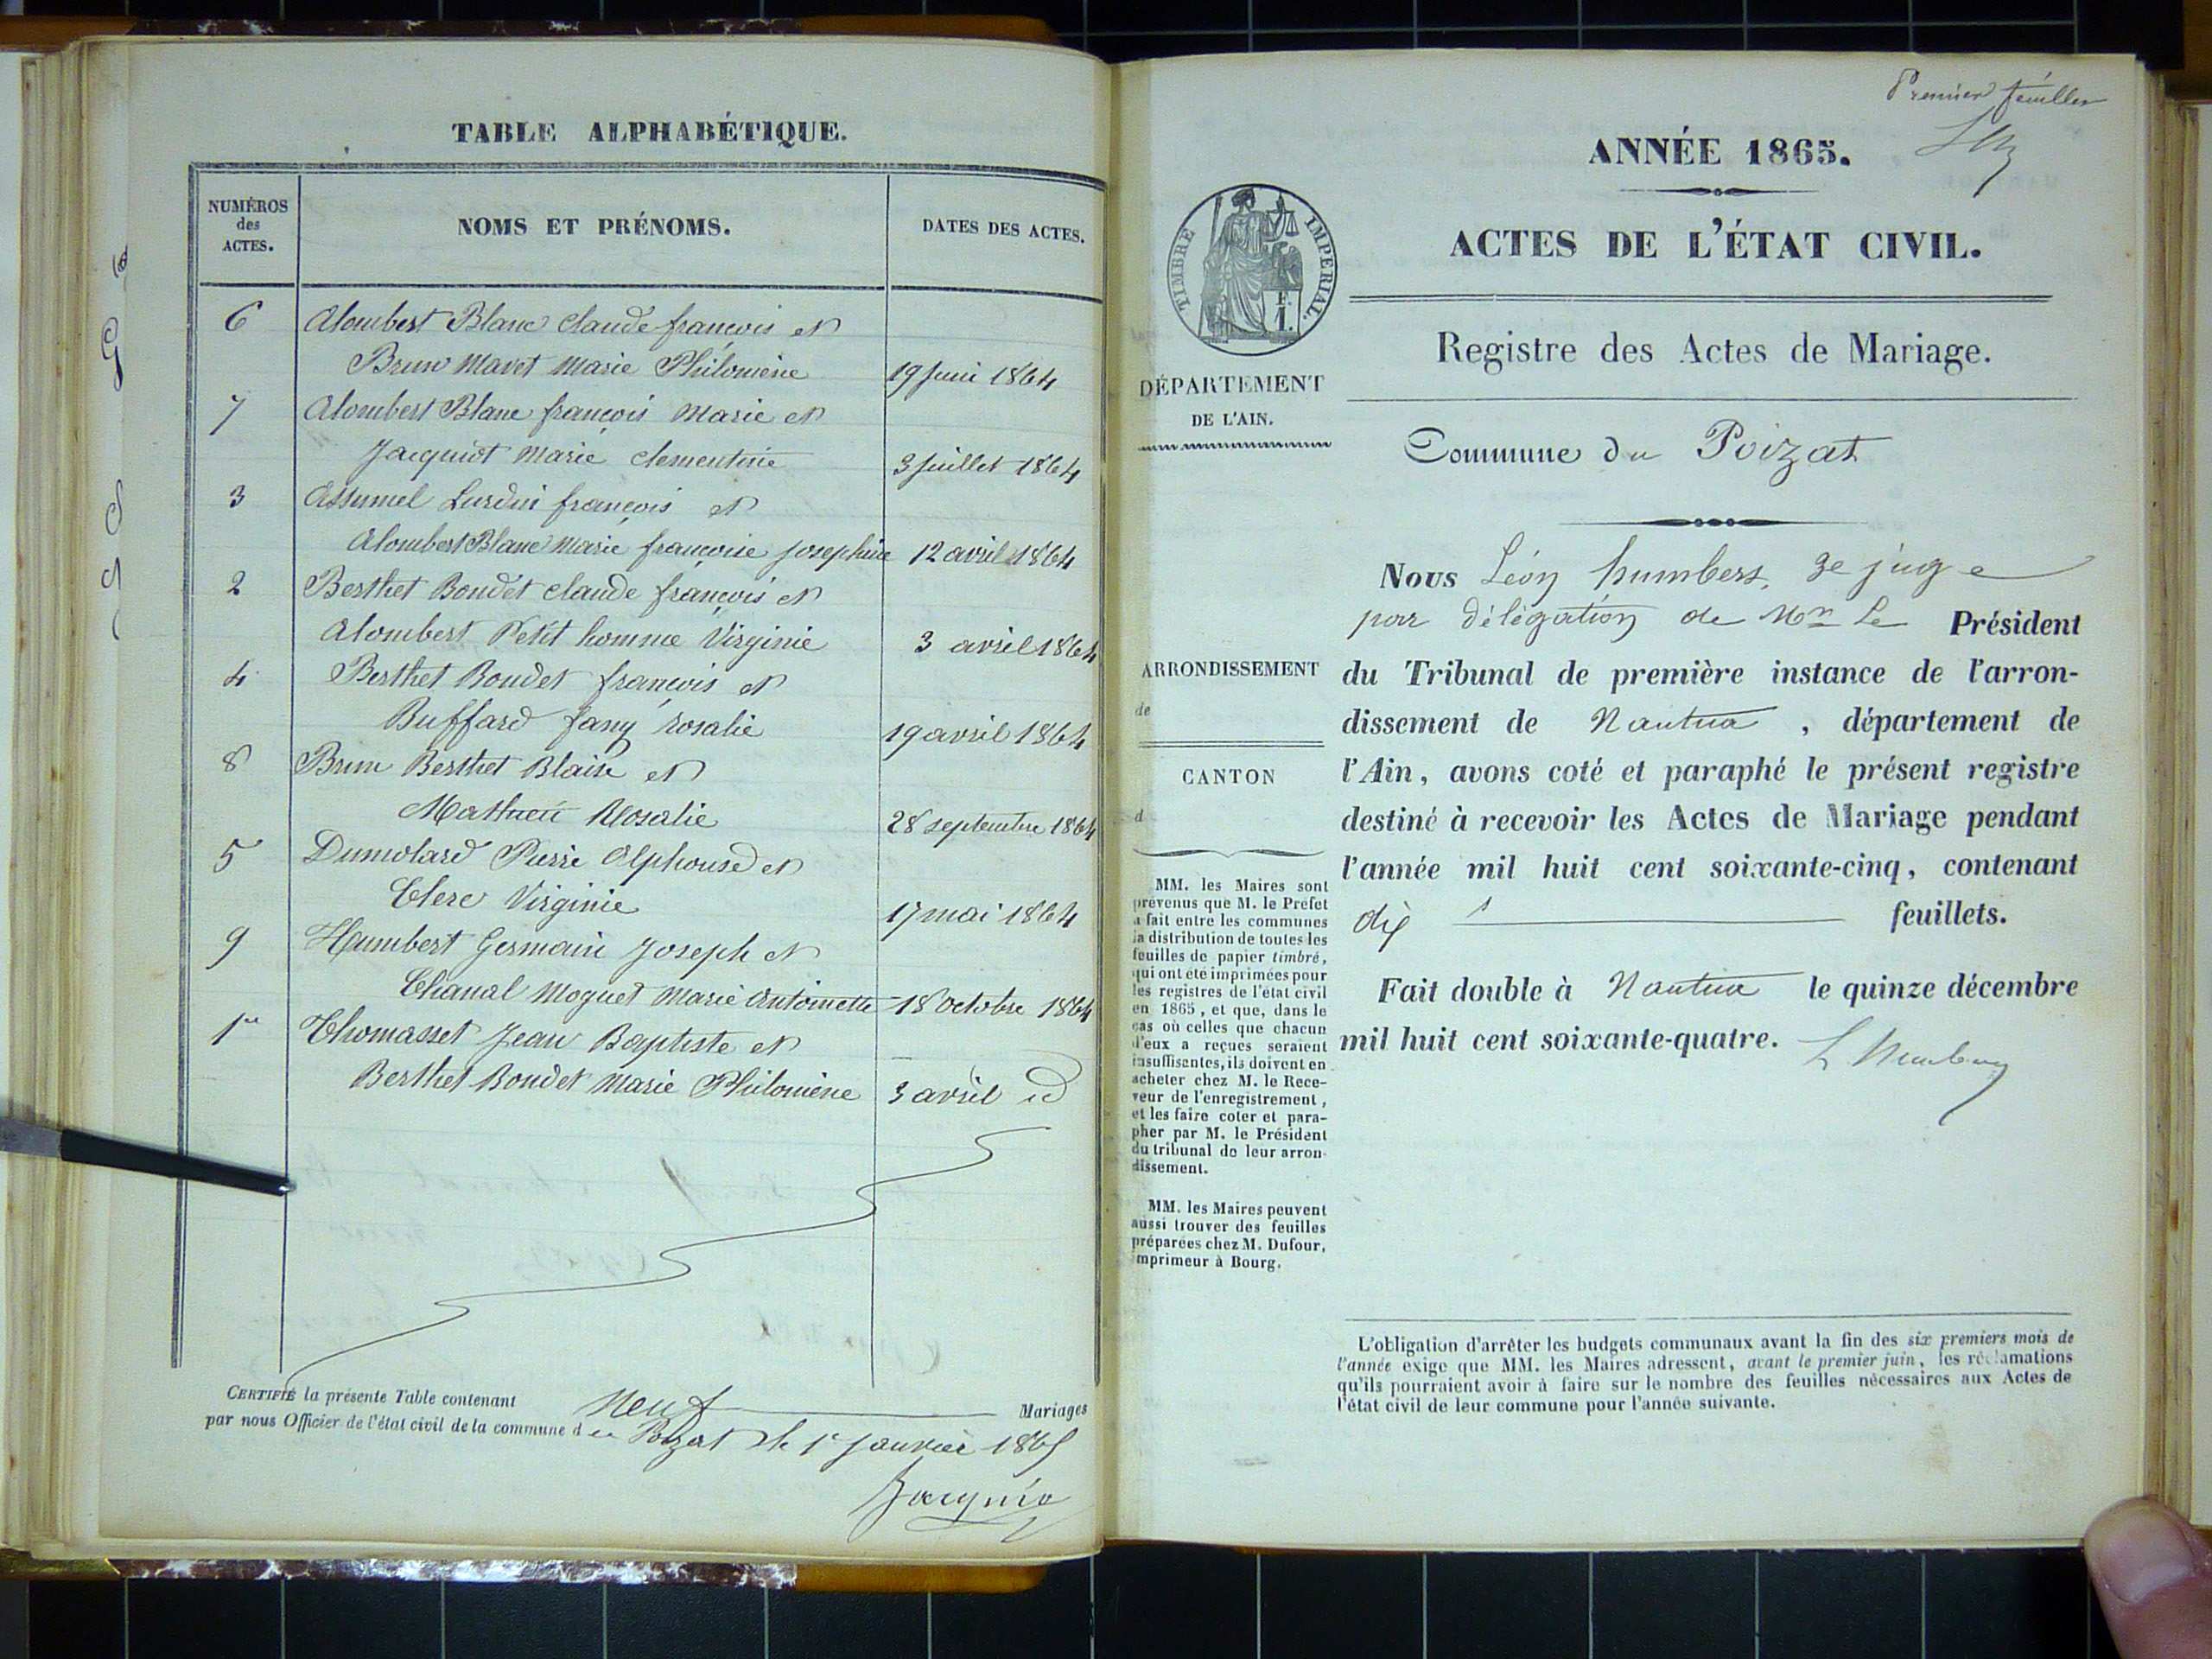 TABLE ALPHABÉTIQUE.
NUMÉROS
des
ACTES.
NOMS ET PRÉNOMS.
DATES DES ACTES.
6 Alombert Blanc claude françois et
Brun Mavet Marie Philomène 19 Juin 1864
7 Alombert Blanc françois Marie et
Jacquiot Marie clementine 3 Juillet 1864
3 Assumel Lurdin françois et
Alombert Blanc Marie françoise Josephine 12 avril 1864
2 Berthet Bondet claude françois et
Alombert Petit homme Virginie 3 avril 1864
4 Berthet Bondet françois et
Buffard fany rosalie 19 avril 1864
8 Brun Berthet Blaise et
Mathieu Rosalie 28 septembre 1864
5 Dumolard Pierre Alphonse et
Clerc Virginie 17 mai 1864
9 Humbert Germain Joseph et
Chanal Moguet Marie Antoinette 18 octobre 1864
1er Thomasset Jean Baptiste et
Berthet Bondet Marie Philomène 3 avril id
CERTIFIÉ la présente Table contenant neuf Mariages
par nous Officier de l'état civil de la commune du Poizat le 1er Janvier 1865
Premier feuillet
ANNÉE 1865.
ACTES DE L'ÉTAT CIVIL.
TIMBRE IMPÉRIAL.
Registre des Actes de Mariage.
DÉPARTEMENT
DE L'AIN.
Commune du Poizat
ARRONDISSEMENT
de
CANTON
d
MM. les Maires sont
prévenus que M. le Préfet
a fait entre les communes
la distribution de toutes les
feuilles de papier timbré,
qui ont été imprimées pour
les registres de l'état civil
en 1865, et que, dans le
cas où celles que chacun
d'eux a reçues seraient
insuffisantes, ils doivent en
acheter chez M. le Rece-
veur de l'enregistrement,
et les faire coter et para-
pher par M. le Président
du tribunal de leur arron-
dissement.
MM. les Maires peuvent
aussi trouver des feuilles
préparées chez M. Dufour,
imprimeur à Bourg.
Nous Léon humbert, 3e juge
par délégation de Mr Le Président
du Tribunal de première instance de l'arron-
dissement de Nantua, département de
l'Ain, avons coté et paraphé le présent registre
destiné à recevoir les Actes de Mariage pendant
l'année mil huit cent soixante-cinq, contenant
dix feuillets.
Fait double à Nantua le quinze décembre
mil huit cent soixante-quatre.
L'obligation d'arrêter les budgets communaux avant la fin des six premiers mois de
l'année exige que MM. les Maires adressent, avant le premier juin, les réclamations
qu'ils pourraient avoir à faire sur le nombre des feuilles nécessaires aux Actes de
l'état civil de leur commune pour l'année suivante.